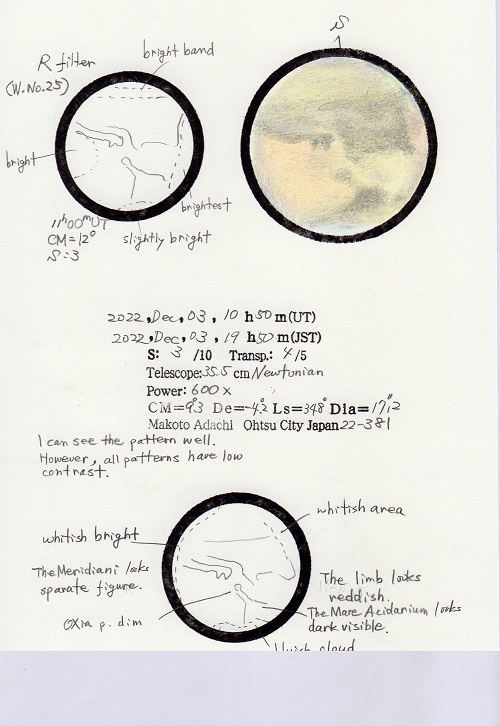 S
R filter
(W.No.25)
bright band
bright
brightest
slightly bright
11h00mUT
CM=12°
S:3
2022, Dec, 03, 10 h 50 m(UT)
2022, Dec, 03, 19 h 50 m(JST)
S: 3 /10 Transp.: 4/5
Telescope: 35.5 cm Newtonian
Power: 600 x
CM=9.°3 De=-4.°2 Ls=348° Dia=17."2
Makoto Adachi Ohtsu City Japan 22-381
I can see the pattern well.
However, all patterns have low
contrast.
whitish area
whitish bright
The Meridiani looks
sparate figure.
Oxia p. dim
The limb looks
reddish.
The Mare Acidanium looks
dark visible.
cloud